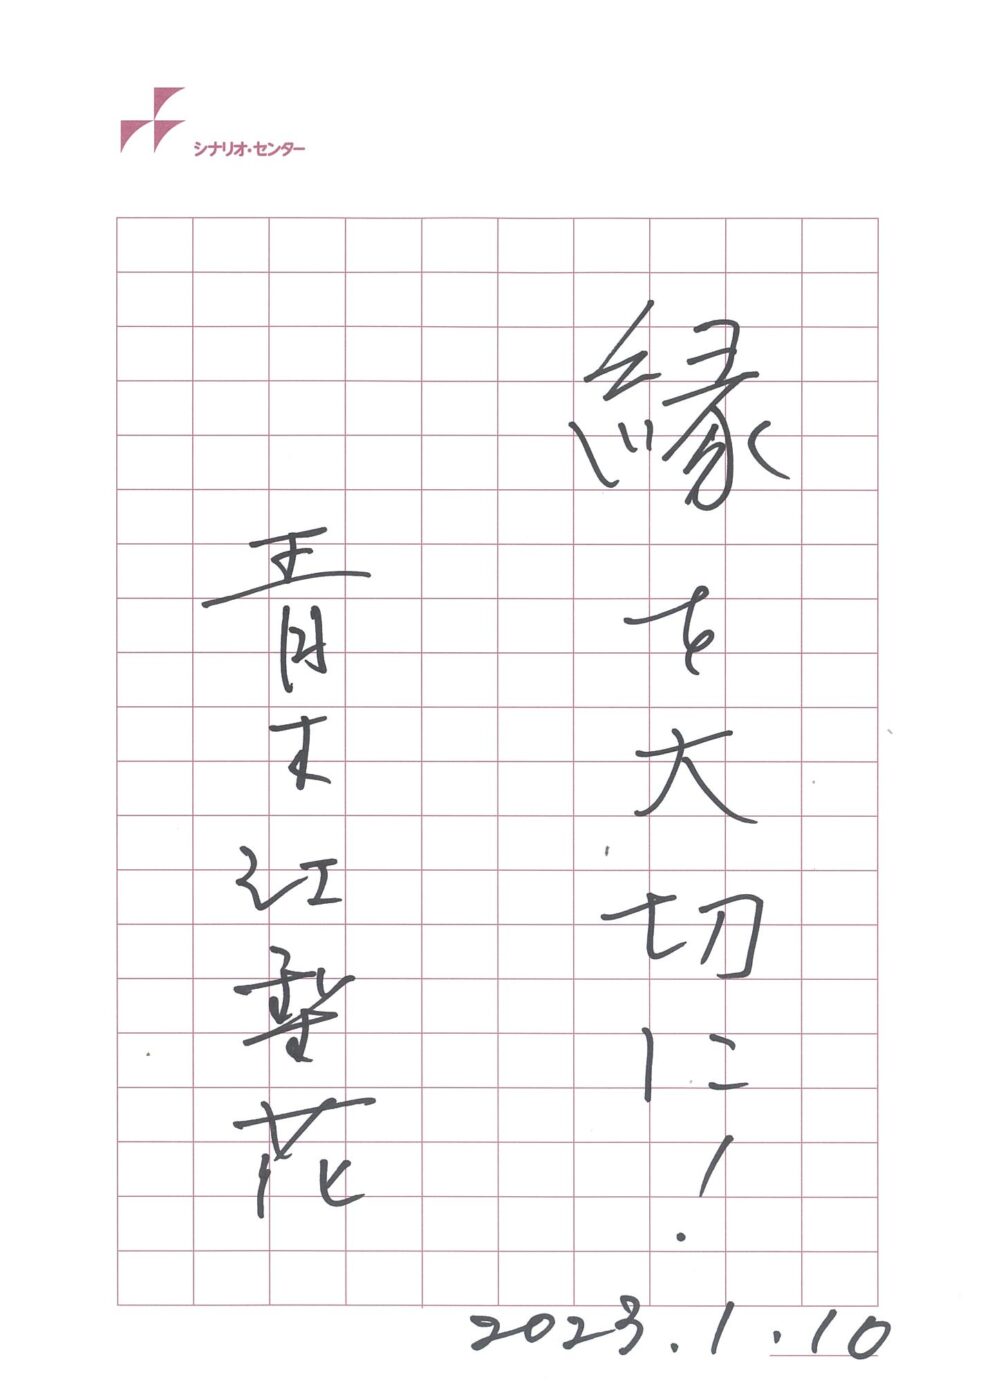 シナリオ・センター
縁を大切に!
青木江梨花
2023.1.10